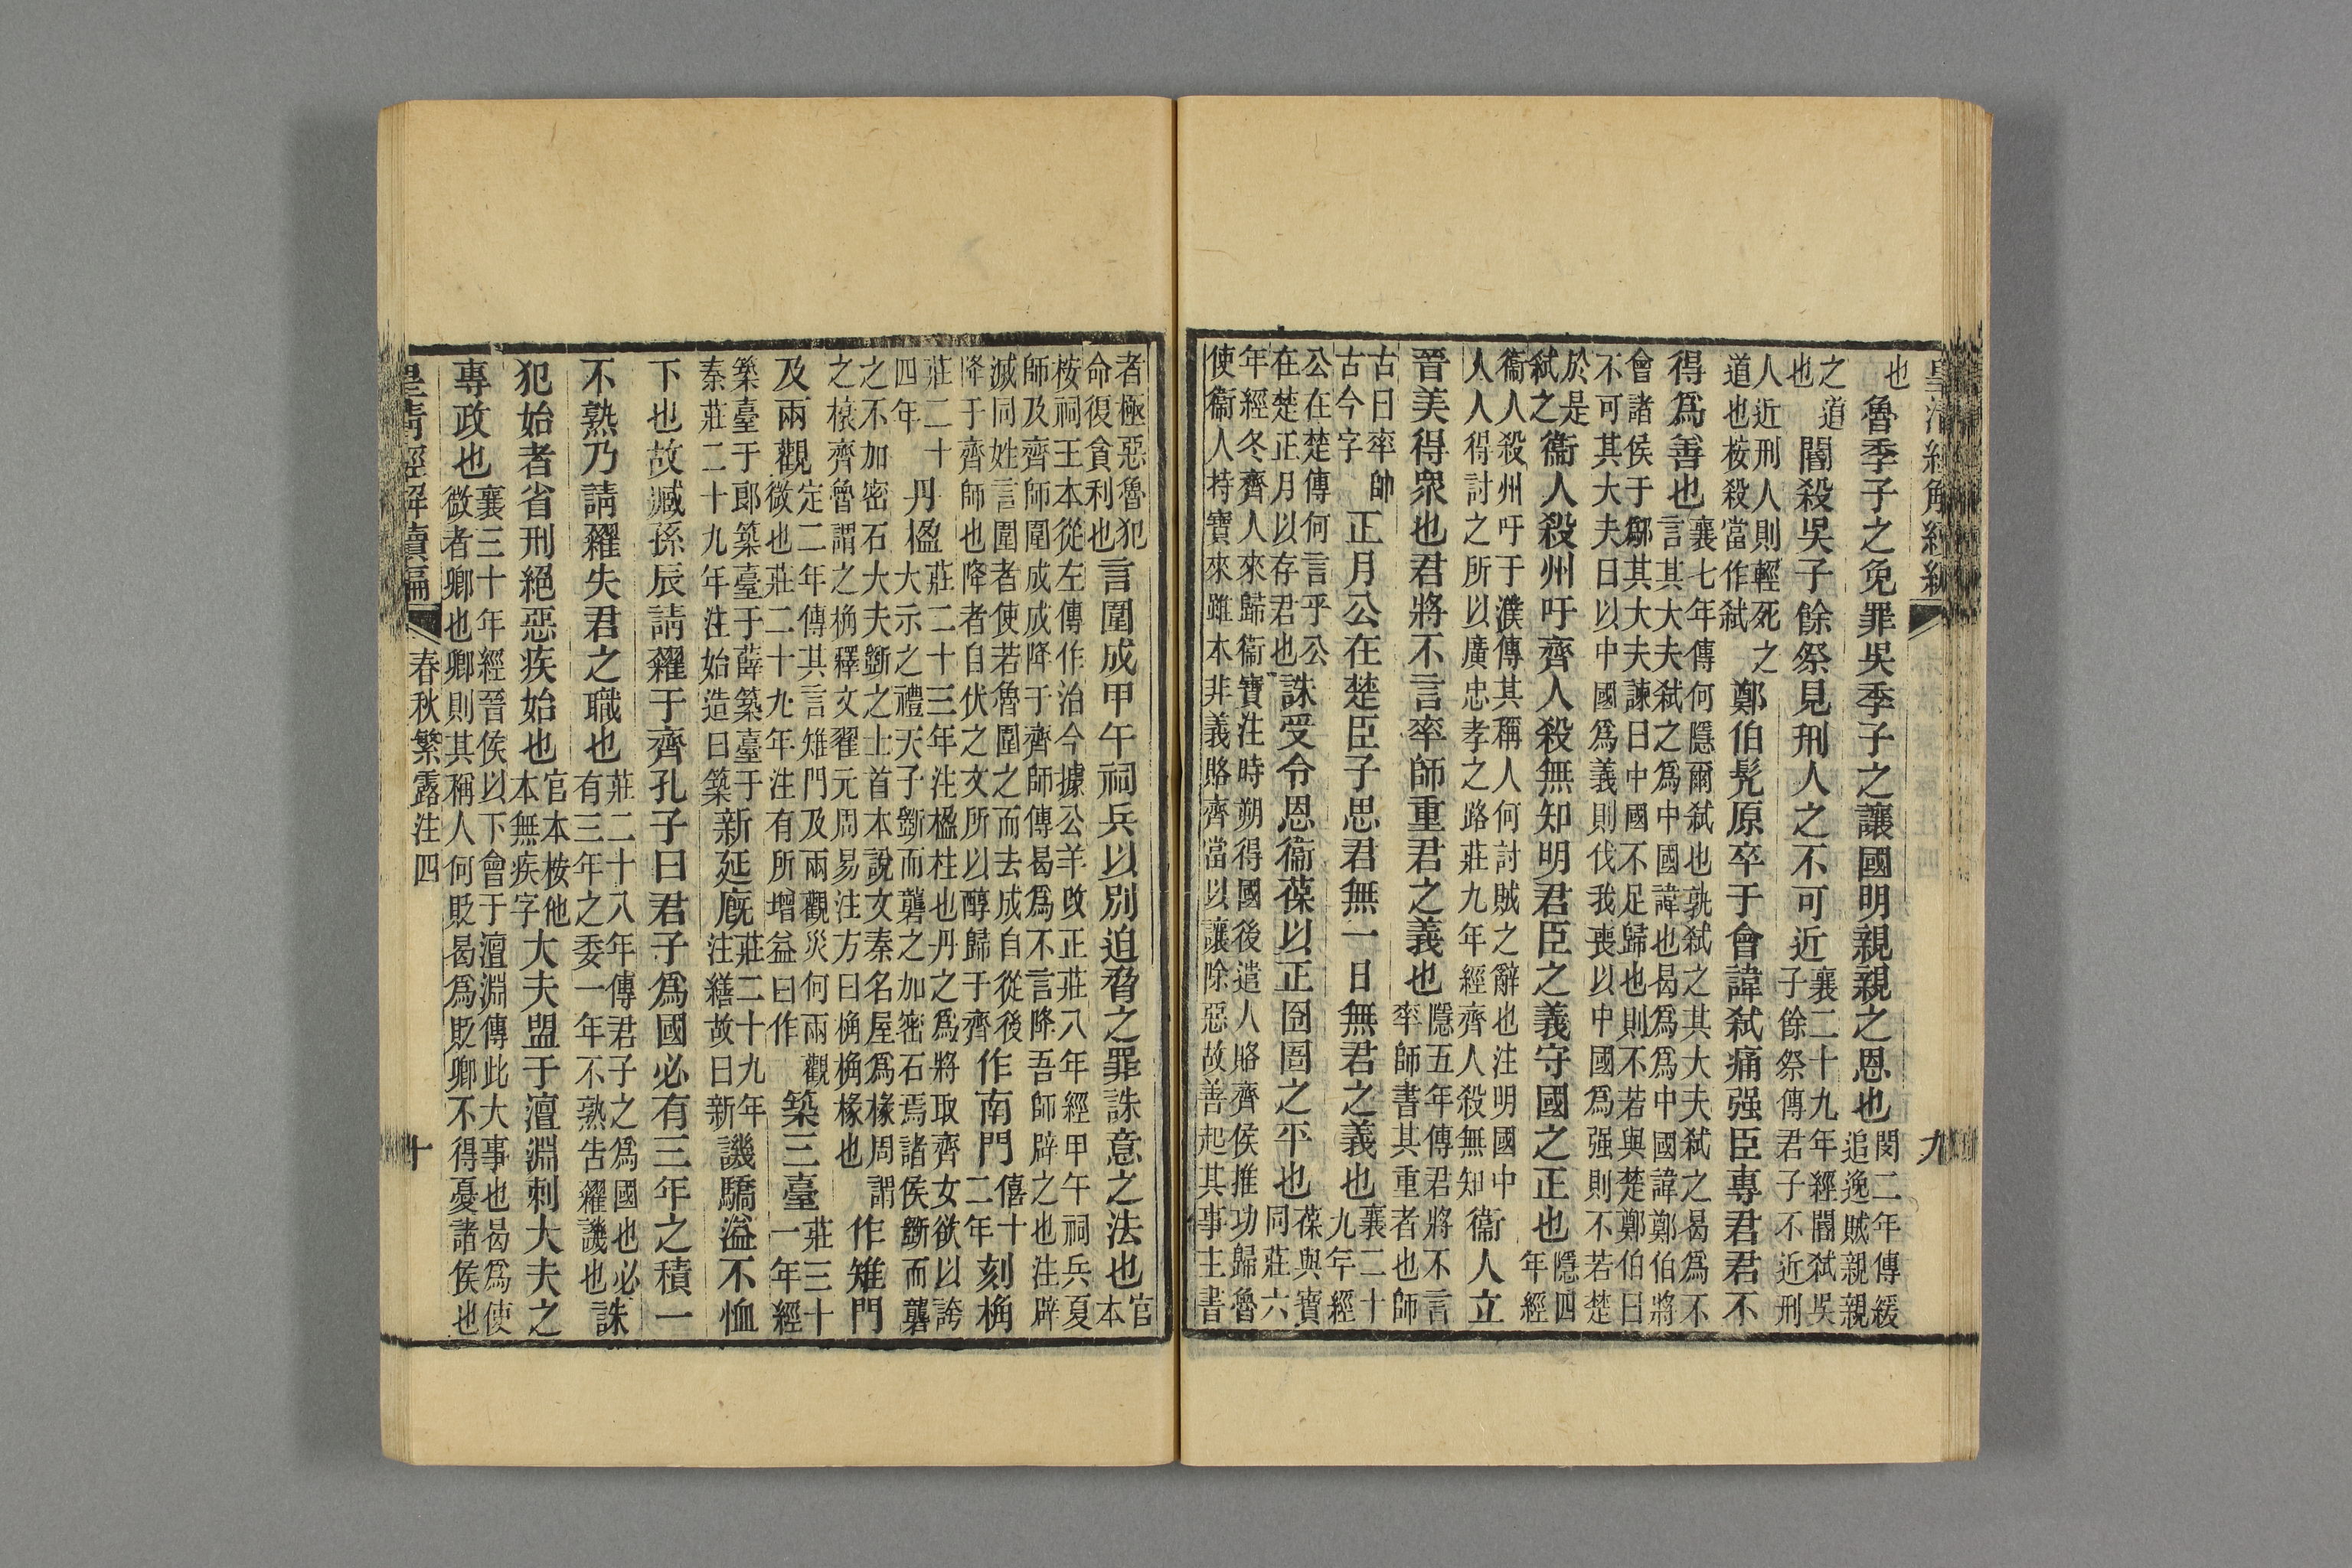 皇清經解續編 九
也魯季子之免罪吳季子之讓國明親親之恩也閔二年傳緩追逸賊親親
之道也閽殺吳子餘祭見刑人之不可近襄二十九年經閽弒吳子餘祭傳君子不近刑
人近刑人則輕死之道也桉殺當作弒鄭伯髡原卒于會諱弒痛强臣專君君不
得爲善也襄七年傳何隱爾弒也孰弒之其大夫弒之曷爲不言其大夫弒之爲中國諱也曷爲爲中國諱鄭伯將
會諸侯于鄬其大夫諫曰中國不足歸也則不若與楚鄭伯曰不可其大夫曰以中國爲義則伐我喪以中國爲强則不若楚
於是弒之衞人殺州吁齊人殺無知明君臣之義守國之正也隱四年經
衞人殺州吁于濮傳其稱人何討賊之辭也注明國中人人得討之所以廣忠孝之路莊九年經齊人殺無知衞人立
晉美得衆也君將不言率師重君之義也隱五年傳君將不言率師書其重者也師
古曰率帥古今字正月公在楚臣子思君無一日無君之義也襄二十九年經
公在楚傳何言乎公在楚正月以存君也誅受令恩衞葆以正囹圄之平也葆與寶同莊六
年經冬齊人來歸衞寶注時朔得國後遣人賂齊侯推功歸魯使衞人持寶來雖本非義賂齊當以讓除惡故善起其事主書
者極惡魯犯命復貪利也言圍成甲午祠兵以別迫脅之罪誅意之法也官本
桉祠王本從左傳作治今據公羊改正莊八年經甲午祠兵夏師及齊師圍成成降于齊師傳曷爲不言降吾師辟之也注辟
滅同姓言圍者使若魯圍之而去成自從後降于齊師也降者自伏之文所以醇歸于齊作南門僖十二年刻桷
莊二十四年丹楹莊二十三年注楹柱也丹之爲將取齊女欲以誇大示之禮天子斲而礱之加密石焉諸侯斲而礱
之不加密石大夫斲之士首本說文秦名屋爲椽周謂之榱齊魯謂之桷釋文翟元周易注方曰桷桷椽也作雉門
及兩觀定二年傳其言雉門及兩觀災何兩觀微也莊二十九年注有所增益曰作築三臺莊三十一年經
築臺于郎築臺于薛築臺于秦莊二十九年注始造曰築新延廐莊二十九年注繕故曰新譏驕溢不恤
下也故臧孫辰請糴于齊孔子曰君子爲國必有三年之積一
不熟乃請糴失君之職也莊二十八年傳君子之爲國也必有三年之委一年不熟告糴譏也誅
犯始者省刑絕惡疾始也官本桉他本無疾字大夫盟于澶淵刺大夫之
專政也襄三十年經晉侯以下會于澶淵傳此大事也曷爲使微者卿也卿則其稱人何貶曷爲貶卿不得憂諸侯也
皇清經解續編 春秋繁露注四 十